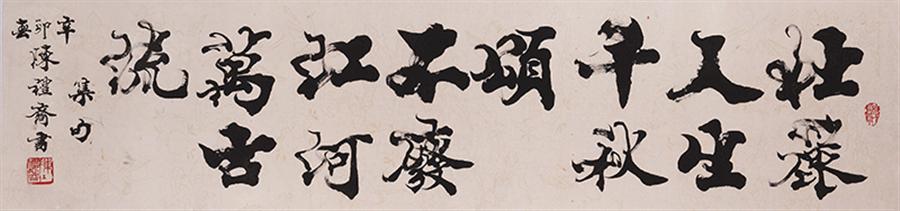 壯麗
人生
千秋
頌
不廢
江河
萬古
流
集句
辛卯春
陳禮齋書